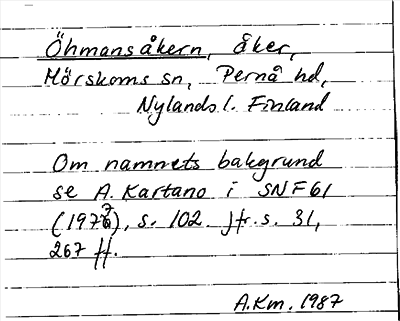 Öhmansåkern, åker,
Mörskoms sn, Pernå hd,
Nylands l. Finland
Om namnets bakgrund
se A. Kartano i SNF 61
(1977), s. 102. Jfr. s. 31,
267 ff.
A.Km. 1987